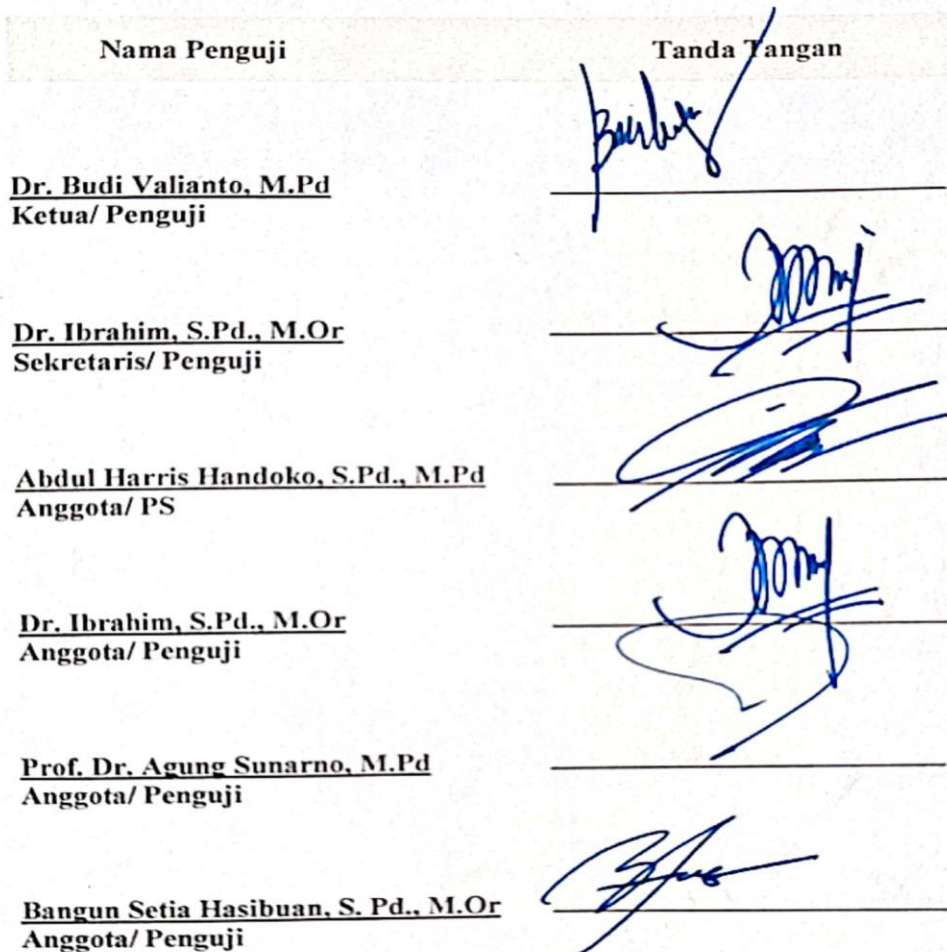 Nama Penguji Tanda Tangan
Dr. Budi Valianto, M.Pd
Ketua/ Penguji
Dr. Ibrahim, S.Pd., M.Or
Sekretaris/ Penguji
Abdul Harris Handoko, S.Pd., M.Pd
Anggota/ PS
Dr. Ibrahim, S.Pd., M.Or
Anggota/ Penguji
Prof. Dr. Agung Sunarno, M.Pd
Anggota/ Penguji
Bangun Setia Hasibuan, S. Pd., M.Or
Anggota/ Penguji